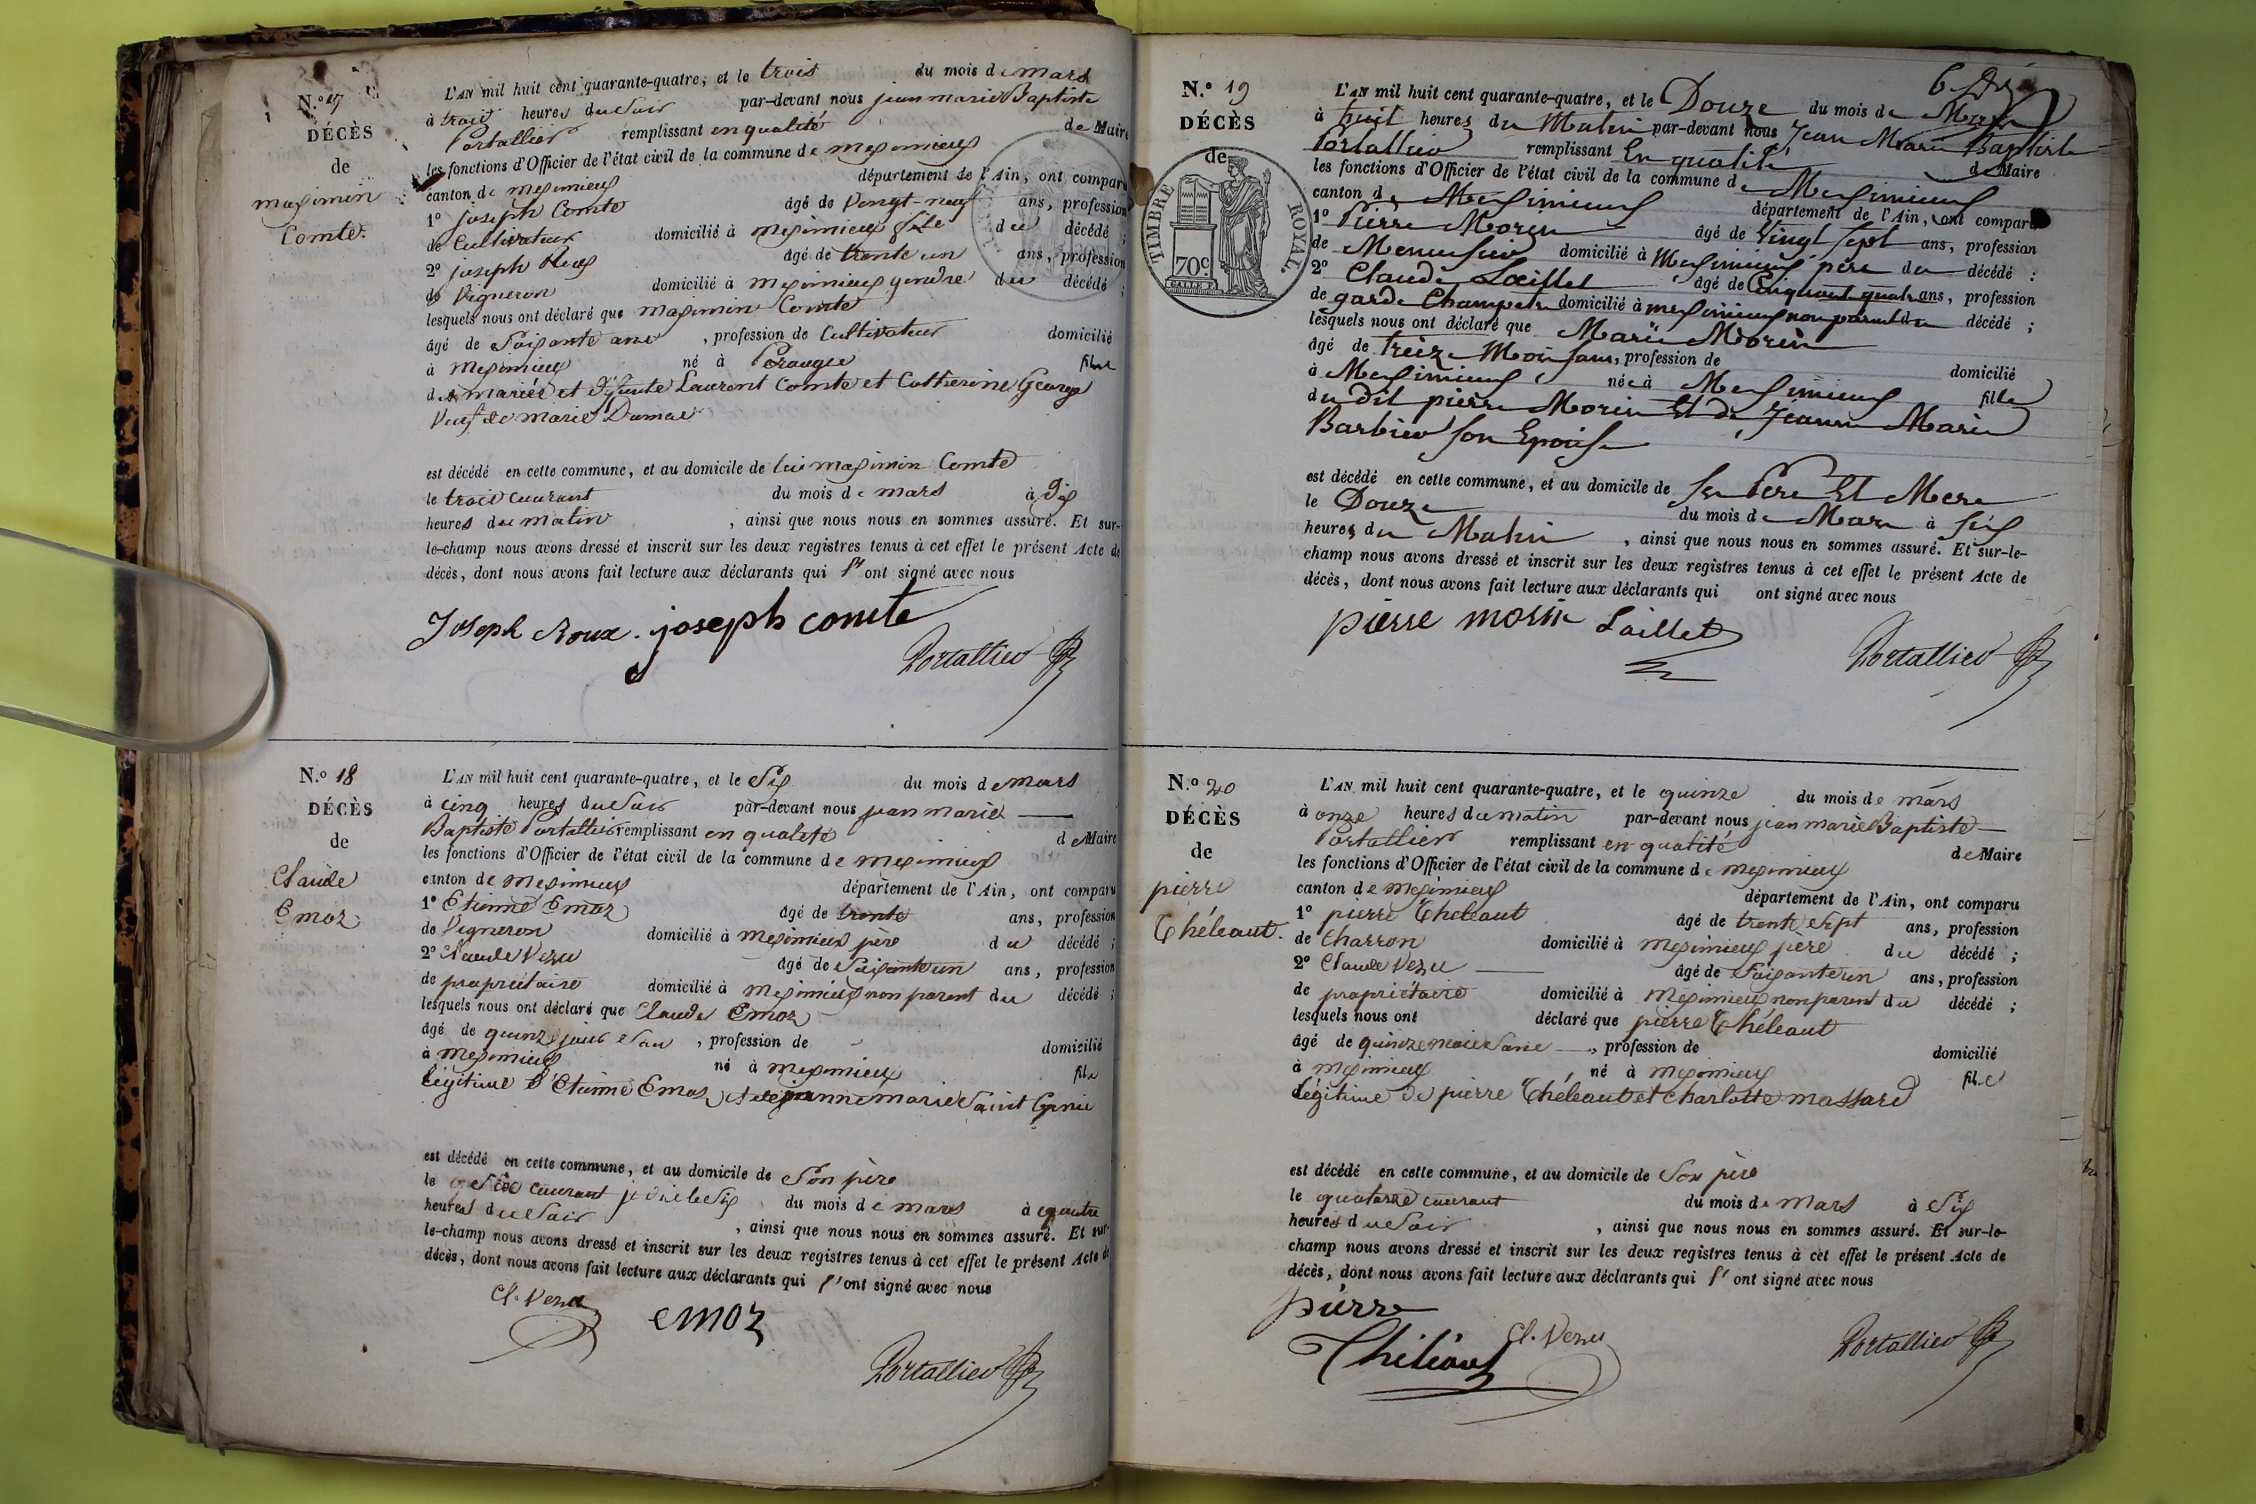 N.° 17
DÉCÈS
de
maximin
Comte.
L'AN mil huit cent quarante-quatre, et le trois du mois de mars
à trois heures du Soir par-devant nous jean marie Baptiste
Portallier remplissant en qualité de Maire
les fonctions d'Officier de l'état civil de la commune de meximieux
canton de meximieux département de l'Ain, ont comparu
1° joseph Comte âgé de Vingt-neuf ans, profession
de Cultivateur domicilié à meximieux fils du décédé ;
2° joseph Roux âgé de trente un ans, profession
de Vigneron domicilié à meximieux gendre du décédé ;
lesquels nous ont déclaré que maximin Comte
âgé de Soixante ans , profession de Cultivateur domicilié
à meximieux né à Perouges fils
des mariés et défunts Laurent Comte et Catherine George
Veuf de marie Dumas
est décédé en cette commune, et au domicile de lui maximin Comte
le trois courant du mois de mars à dix
heures du matin , ainsi que nous nous en sommes assuré. Et sur-
le-champ nous avons dressé et inscrit sur les deux registres tenus à cet effet le présent Acte de
décès, dont nous avons fait lecture aux déclarants qui l'ont signé avec nous
Joseph Roux. joseph comte
Portallier
N.° 18
DÉCÈS
de
Claude
Emoz
L'AN mil huit cent quarante-quatre, et le Six du mois de mars
à cinq heures du Soir par-devant nous jean marie
Baptiste Portallier remplissant en qualité de Maire
les fonctions d'Officier de l'état civil de la commune de meximieux
canton de meximieux département de l'Ain, ont comparu
1° Etienne Emoz âgé de trente ans, profession
de Vigneron domicilié à meximieux père du décédé ;
2° Claude Vezu âgé de Soixante un ans, profession
de propriétaire domicilié à meximieux non parent du décédé ;
lesquels nous ont déclaré que Claude Emoz
âgé de quinze jours , profession de domicilié
à meximieux né à meximieux fils
légitime d'Etienne Emoz et de jeanne marie Saint Cyrnie
est décédé en cette commune, et au domicile de Son père
le courant du mois de mars à quatre
heures du Soir , ainsi que nous nous en sommes assuré. Et sur-
le-champ nous avons dressé et inscrit sur les deux registres tenus à cet effet le présent Acte de
décès, dont nous avons fait lecture aux déclarants qui l'ont signé avec nous
Cl. Vezu emoz
Portallier
N.° 19
DÉCÈS
de
TIMBRE ROYAL.
70c
L'AN mil huit cent quarante-quatre, et le Douze du mois de Mars
à huit heures du Matin par-devant nous Jean Marie Baptiste
Portallier remplissant En qualité de Maire
les fonctions d'Officier de l'état civil de la commune de Meximieux
canton de Meximieux département de l'Ain, ont comparu
1° Pierre Morin âgé de Vingt Sept ans, profession
de Menuisier domicilié à Meximieux père du décédé ;
2° Claude Loeillet âgé de Cinquante quatre ans, profession
de garde Champetre domicilié à meximieux non parent du décédé ;
lesquels nous ont déclaré que Marie Morin
âgé de treize Mois ans, profession de domicilié
à Meximieux née à Meximieux fille
du dit pierre Morin Et de Jeanne Marie
Barbier Son Epouse
est décédé en cette commune, et au domicile de Ses Père Et Mere
le Douze du mois de Mars à Six
heures du Matin , ainsi que nous nous en sommes assuré. Et sur-le-
champ nous avons dressé et inscrit sur les deux registres tenus à cet effet le présent Acte de
décès, dont nous avons fait lecture aux déclarants qui ont signé avec nous
pierre morin Loillet
Portallier
N.° 20
DÉCÈS
de
pierre
Théleaut.
L'AN mil huit cent quarante-quatre, et le quinze du mois de mars
à onze heures du matin par-devant nous jean marie Baptiste
Portallier remplissant en qualité de Maire
les fonctions d'Officier de l'état civil de la commune de meximieux
canton de meximieux département de l'Ain, ont comparu
1° pierre Théleaut âgé de trente Sept ans, profession
de Charron domicilié à meximieux père du décédé ;
2° Claude Vezu âgé de Soixante un ans, profession
de propriétaire domicilié à meximieux non parent du décédé ;
lesquels nous ont déclaré que pierre Théleaut
âgé de quinze mois Sans , profession de domicilié
à meximieux né à meximieux fils
légitime de pierre Théleaut et Charlotte massard
est décédé en cette commune, et au domicile de Son père
le quatorze courant du mois de mars à Six
heures du Soir , ainsi que nous nous en sommes assuré. Et sur-le-
champ nous avons dressé et inscrit sur les deux registres tenus à cet effet le présent Acte de
décès, dont nous avons fait lecture aux déclarants qui l'ont signé avec nous
pierre
Théléaut Cl. Vezu
Portallier